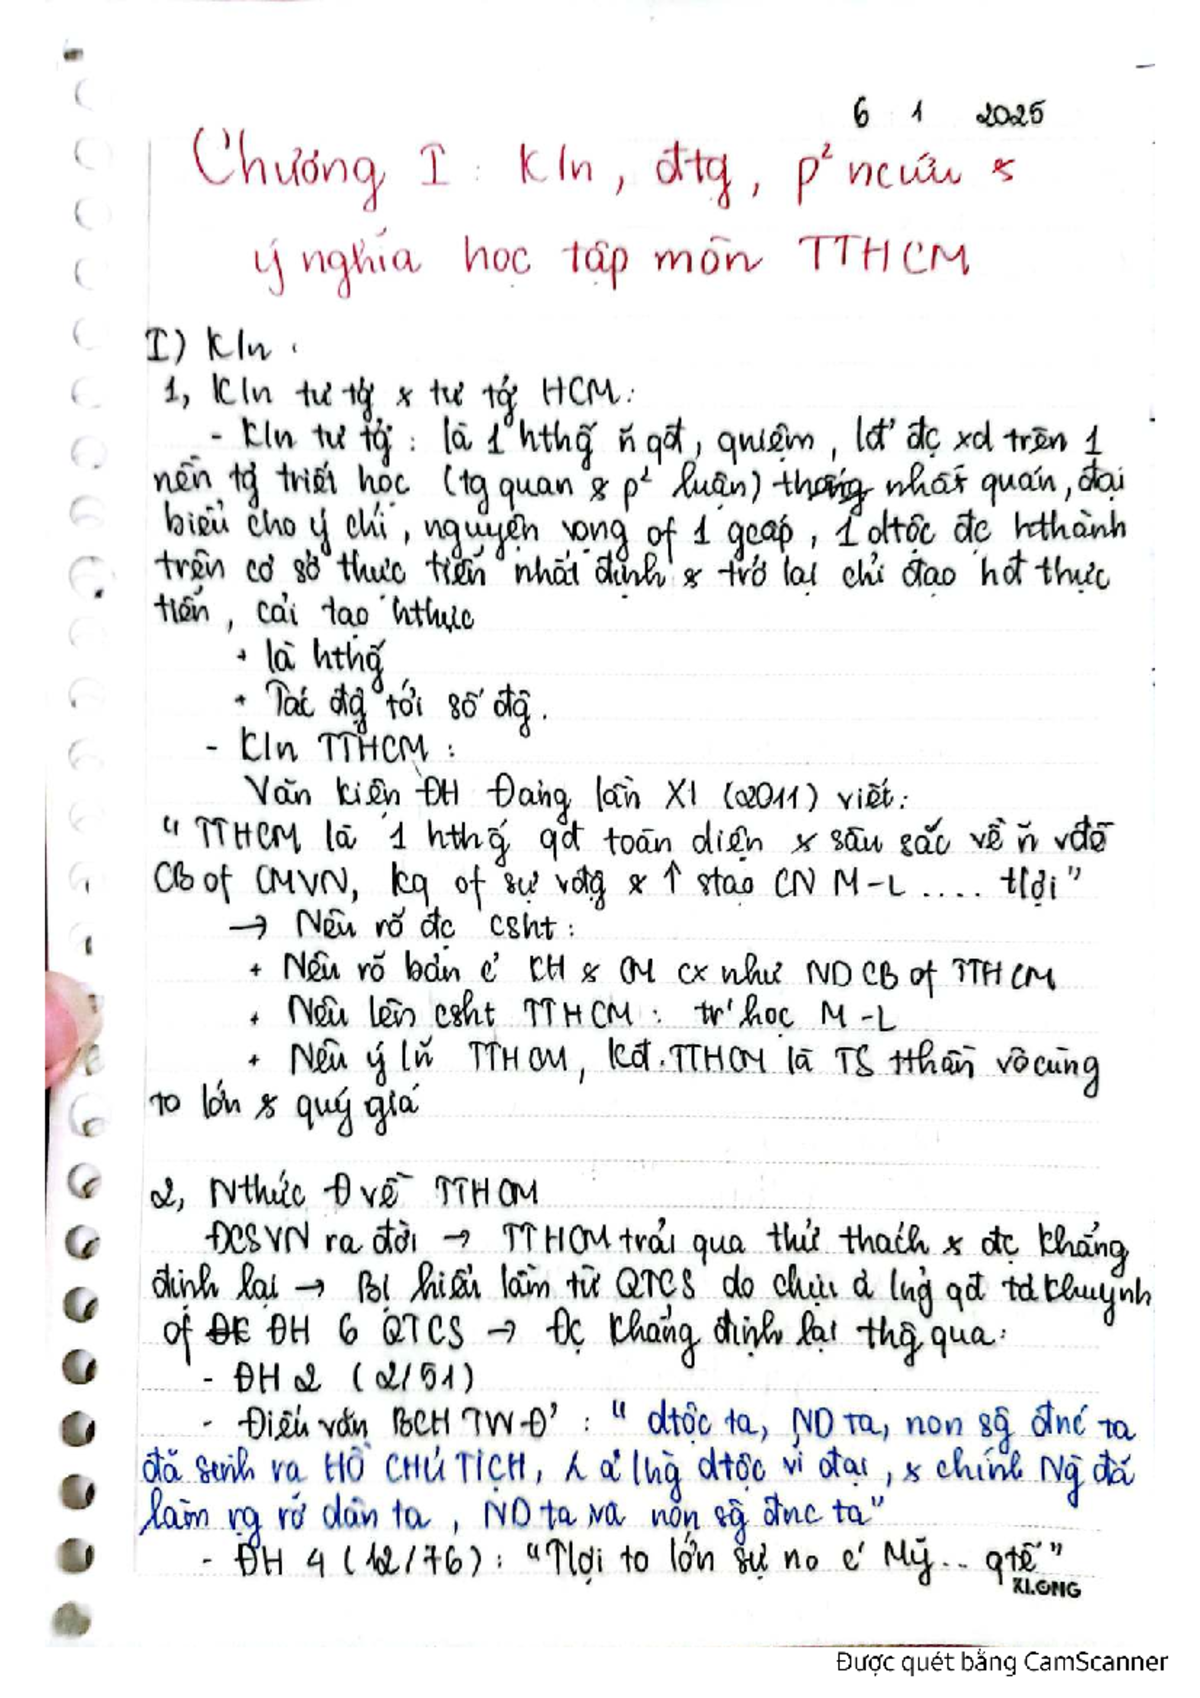 6 1 2025
Chương I : K/n, đtg, p² ncứu &
ý nghĩa học tập môn TTHCM
I) K/n :
1, K/n tư tg & tư tg HCM:
- K/n tư tg : là 1 hthg ~ qđ, qniệm, lđ' đc xd trên 1
nền tg triết học (tg quan & p² luận) thống nhất quán, đại
biểu cho ý chí, nguyện vọng of 1 gcấp, 1 dtộc đc hthành
trên cơ sở thực tiễn nhất định & trở lại chỉ đạo hđ thực
tiễn, cải tạo hthực
+ là hthg
+ Tác đg tới số đg.
- K/n TTHCM :
Văn kiện ĐH Đảng lần XI (2011) viết:
"TTHCM là 1 hthg qđ toàn diện & sâu sắc về ~ vđề
CB of CMVN, kq of sự vdg & ↑ stạo CN M-L .... tlợi"
→ Nêu rõ đc csht:
+ Nêu rõ bản c' KH & CM cx như ND CB of TTHCM
+ Nêu lên csht TTHCM : tr' học M-L
+ Nêu ý n TTHCM, kđ. TTHCM là TS tthần vô cùng
to lớn & quý giá
2, Nthức Đ về TTHCM
ĐCSVN ra đời → TTHCM trải qua thử thách & đc khẳng
định lại → Bị hiểu lầm từ QTCS do chịu ả hg qđ tả khuynh
of ĐH 6 QTCS → Đc khẳng định lại thg qua:
- ĐH 2 (2/51)
- Điếu văn BCH TW Đ' : "dtộc ta, ND ta, non sg đnc ta
đã sinh ra HỒ CHỦ TỊCH, ả hg dtộc vĩ đại, & chính Ng đã
làm rg rỡ dân ta, ND ta và non sg đnc ta"
- ĐH 4 (12/76) : "Tlợi to lớn sự no c' Mỹ... qtế"
KLONG
Được quét bằng CamScanner